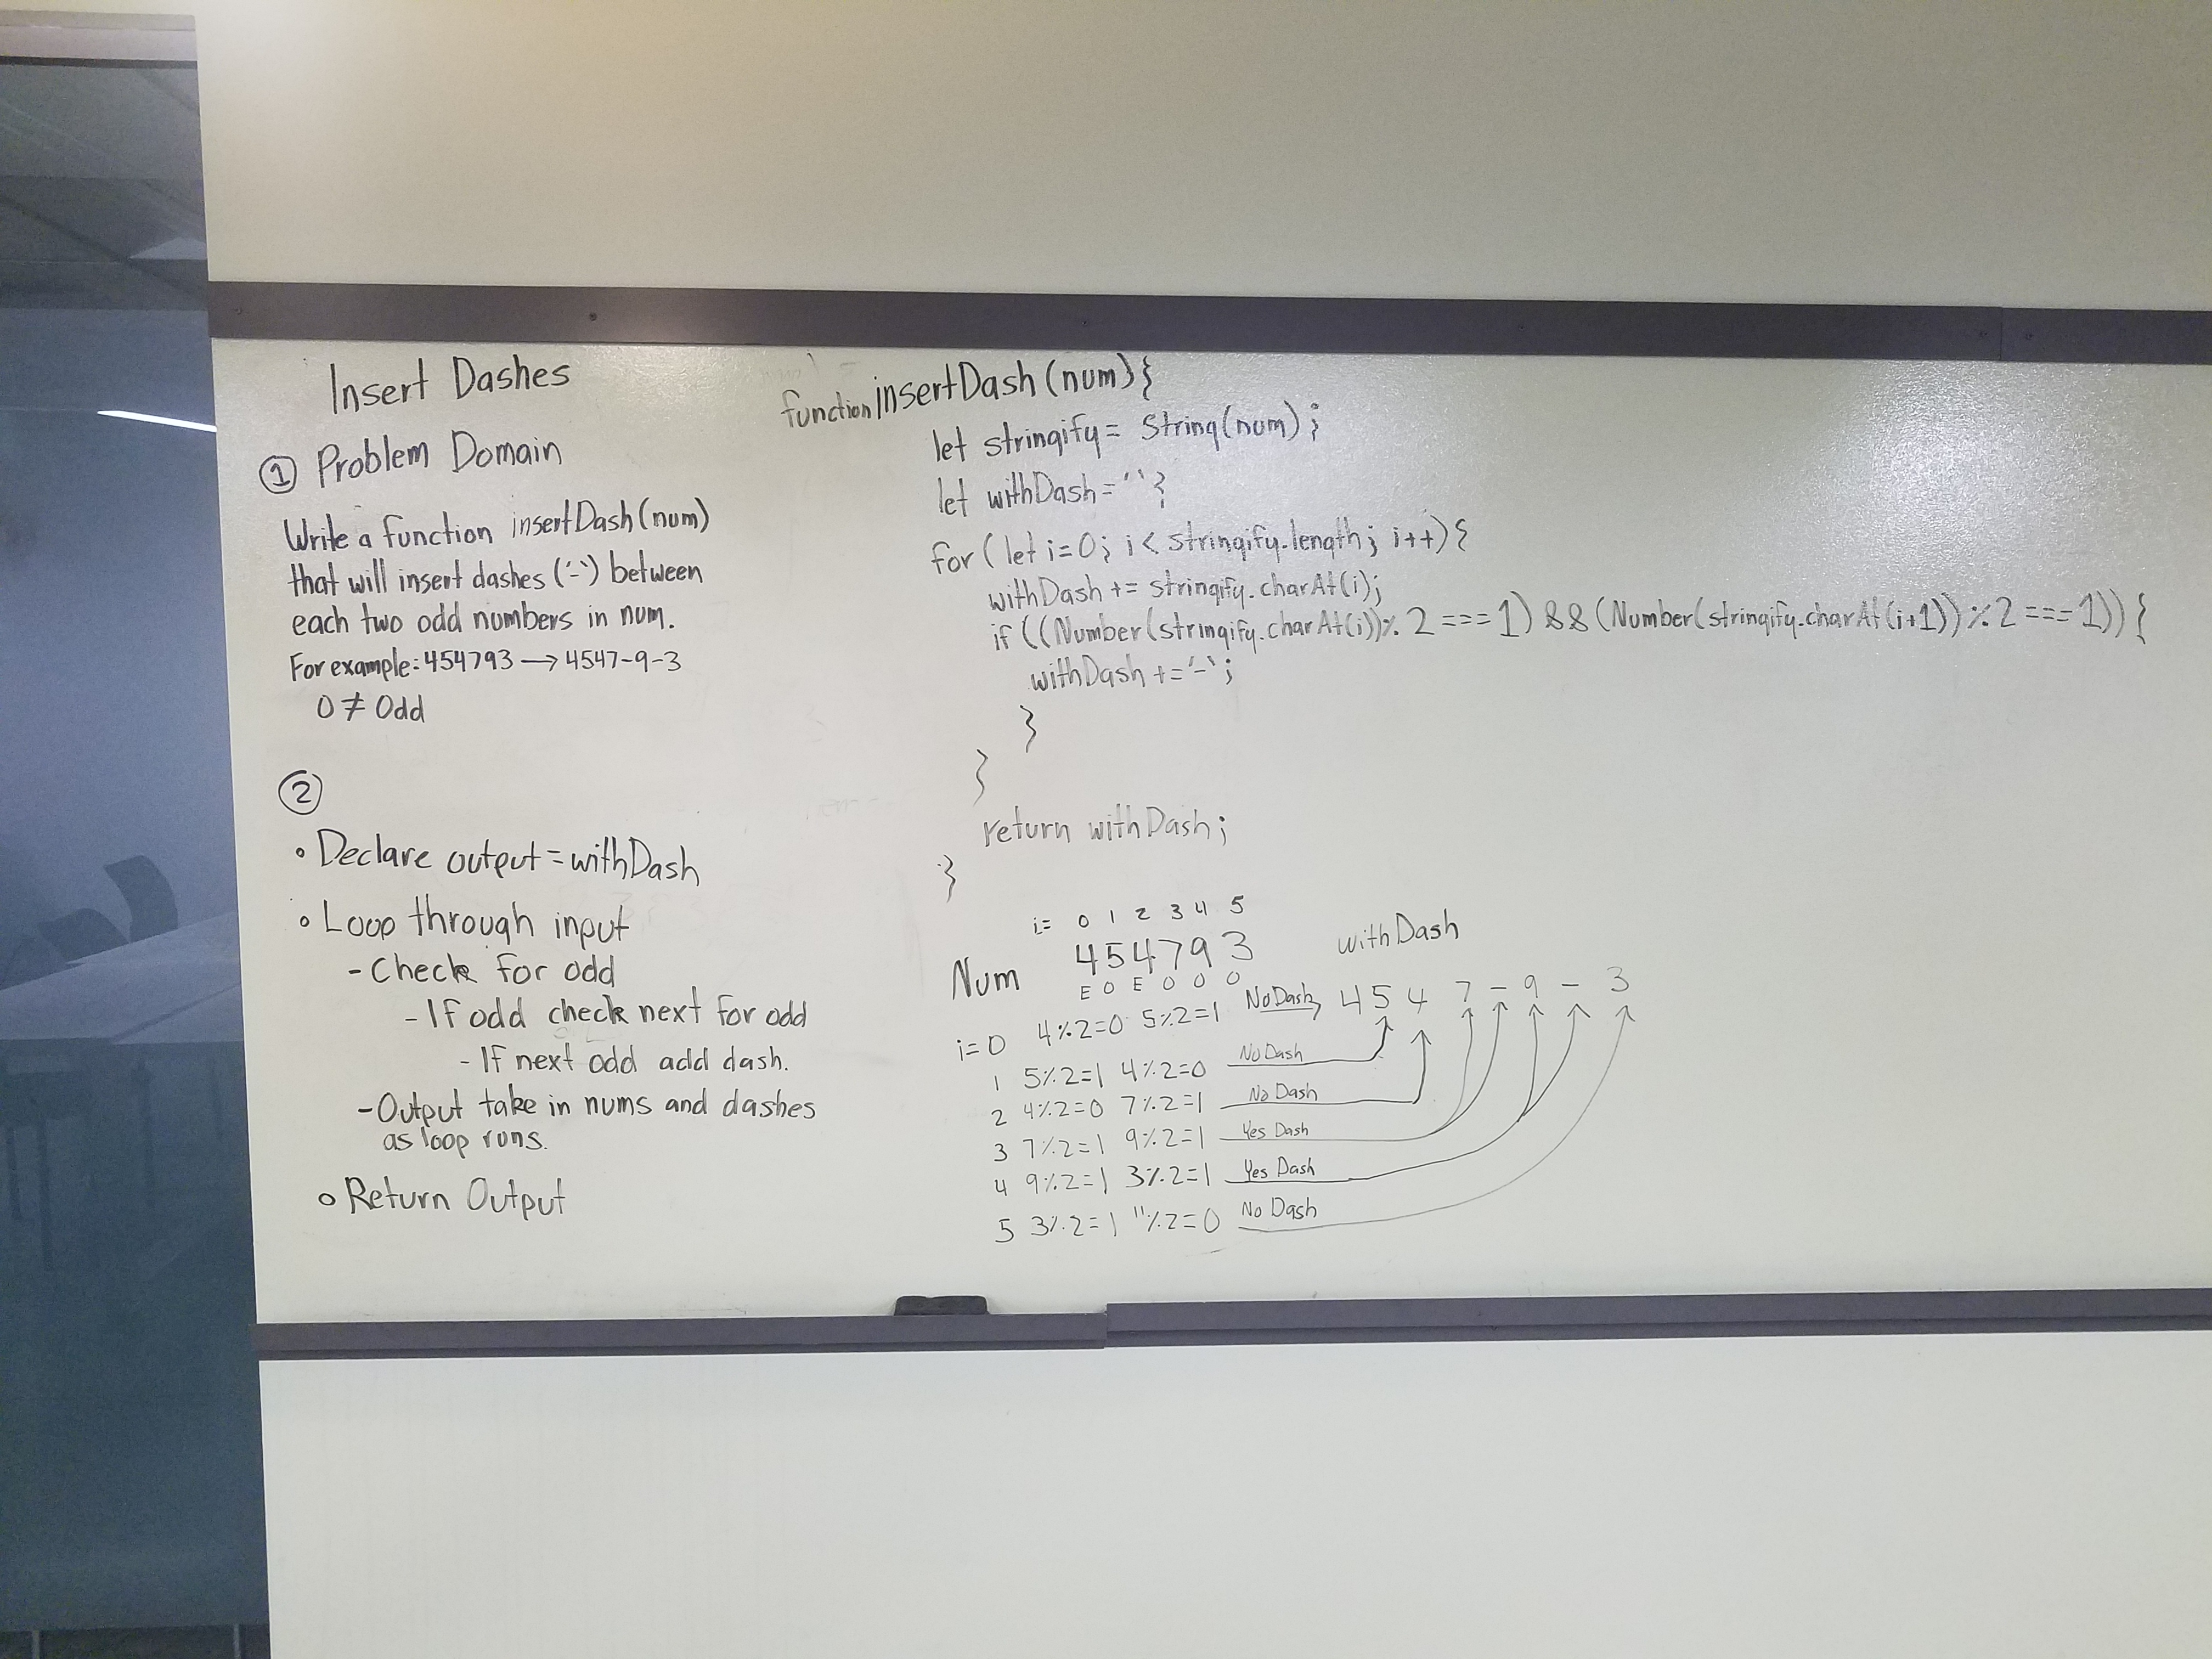 Insert Dashes
① Problem Domain
Write a function insertDash(num)
that will insert dashes ('-') between
each two odd numbers in num.
For example: 454793 → 4547-9-3
0 ≠ Odd
②
• Declare output = withDash
• Loop through input
- Check for odd
- If odd check next for odd
- If next odd add dash.
- Output take in nums and dashes
as loop runs.
• Return Output
function insertDash(num){
let stringify = String(num);
let withDash = '';
for (let i=0; i < stringify.length; i++){
withDash += stringify.charAt(i);
if ((Number(stringify.charAt(i))%2 === 1) && (Number(stringify.charAt(i+1))%2 === 1)) {
withDash += '-';
}
}
return withDash;
}
i= 0 1 2 3 4 5
Num 454793 withDash
E O E O O O
i=0 4%2=0 5%2=1 No Dash 4 5 4 7 - 9 - 3
1 5%2=1 4%2=0 No Dash
2 4%2=0 7%2=1 No Dash
3 7%2=1 9%2=1 Yes Dash
4 9%2=1 3%2=1 Yes Dash
5 3%2=1 ''%2=0 No Dash